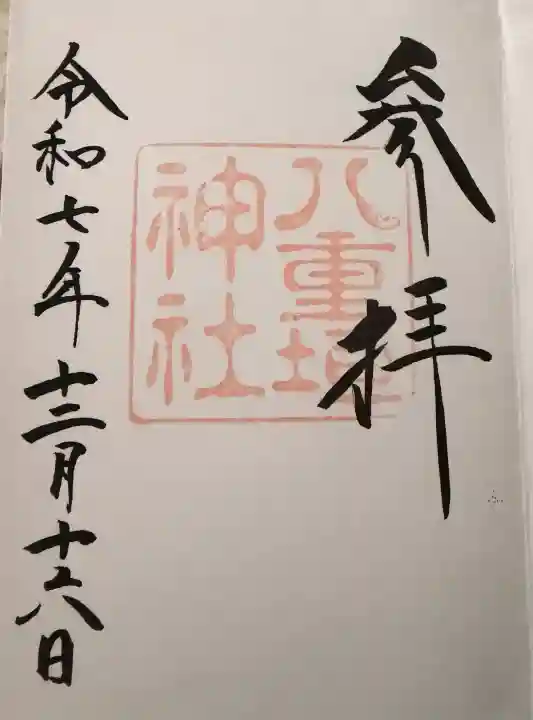 参拝
八重垣
神社
令和七年十二月十六日